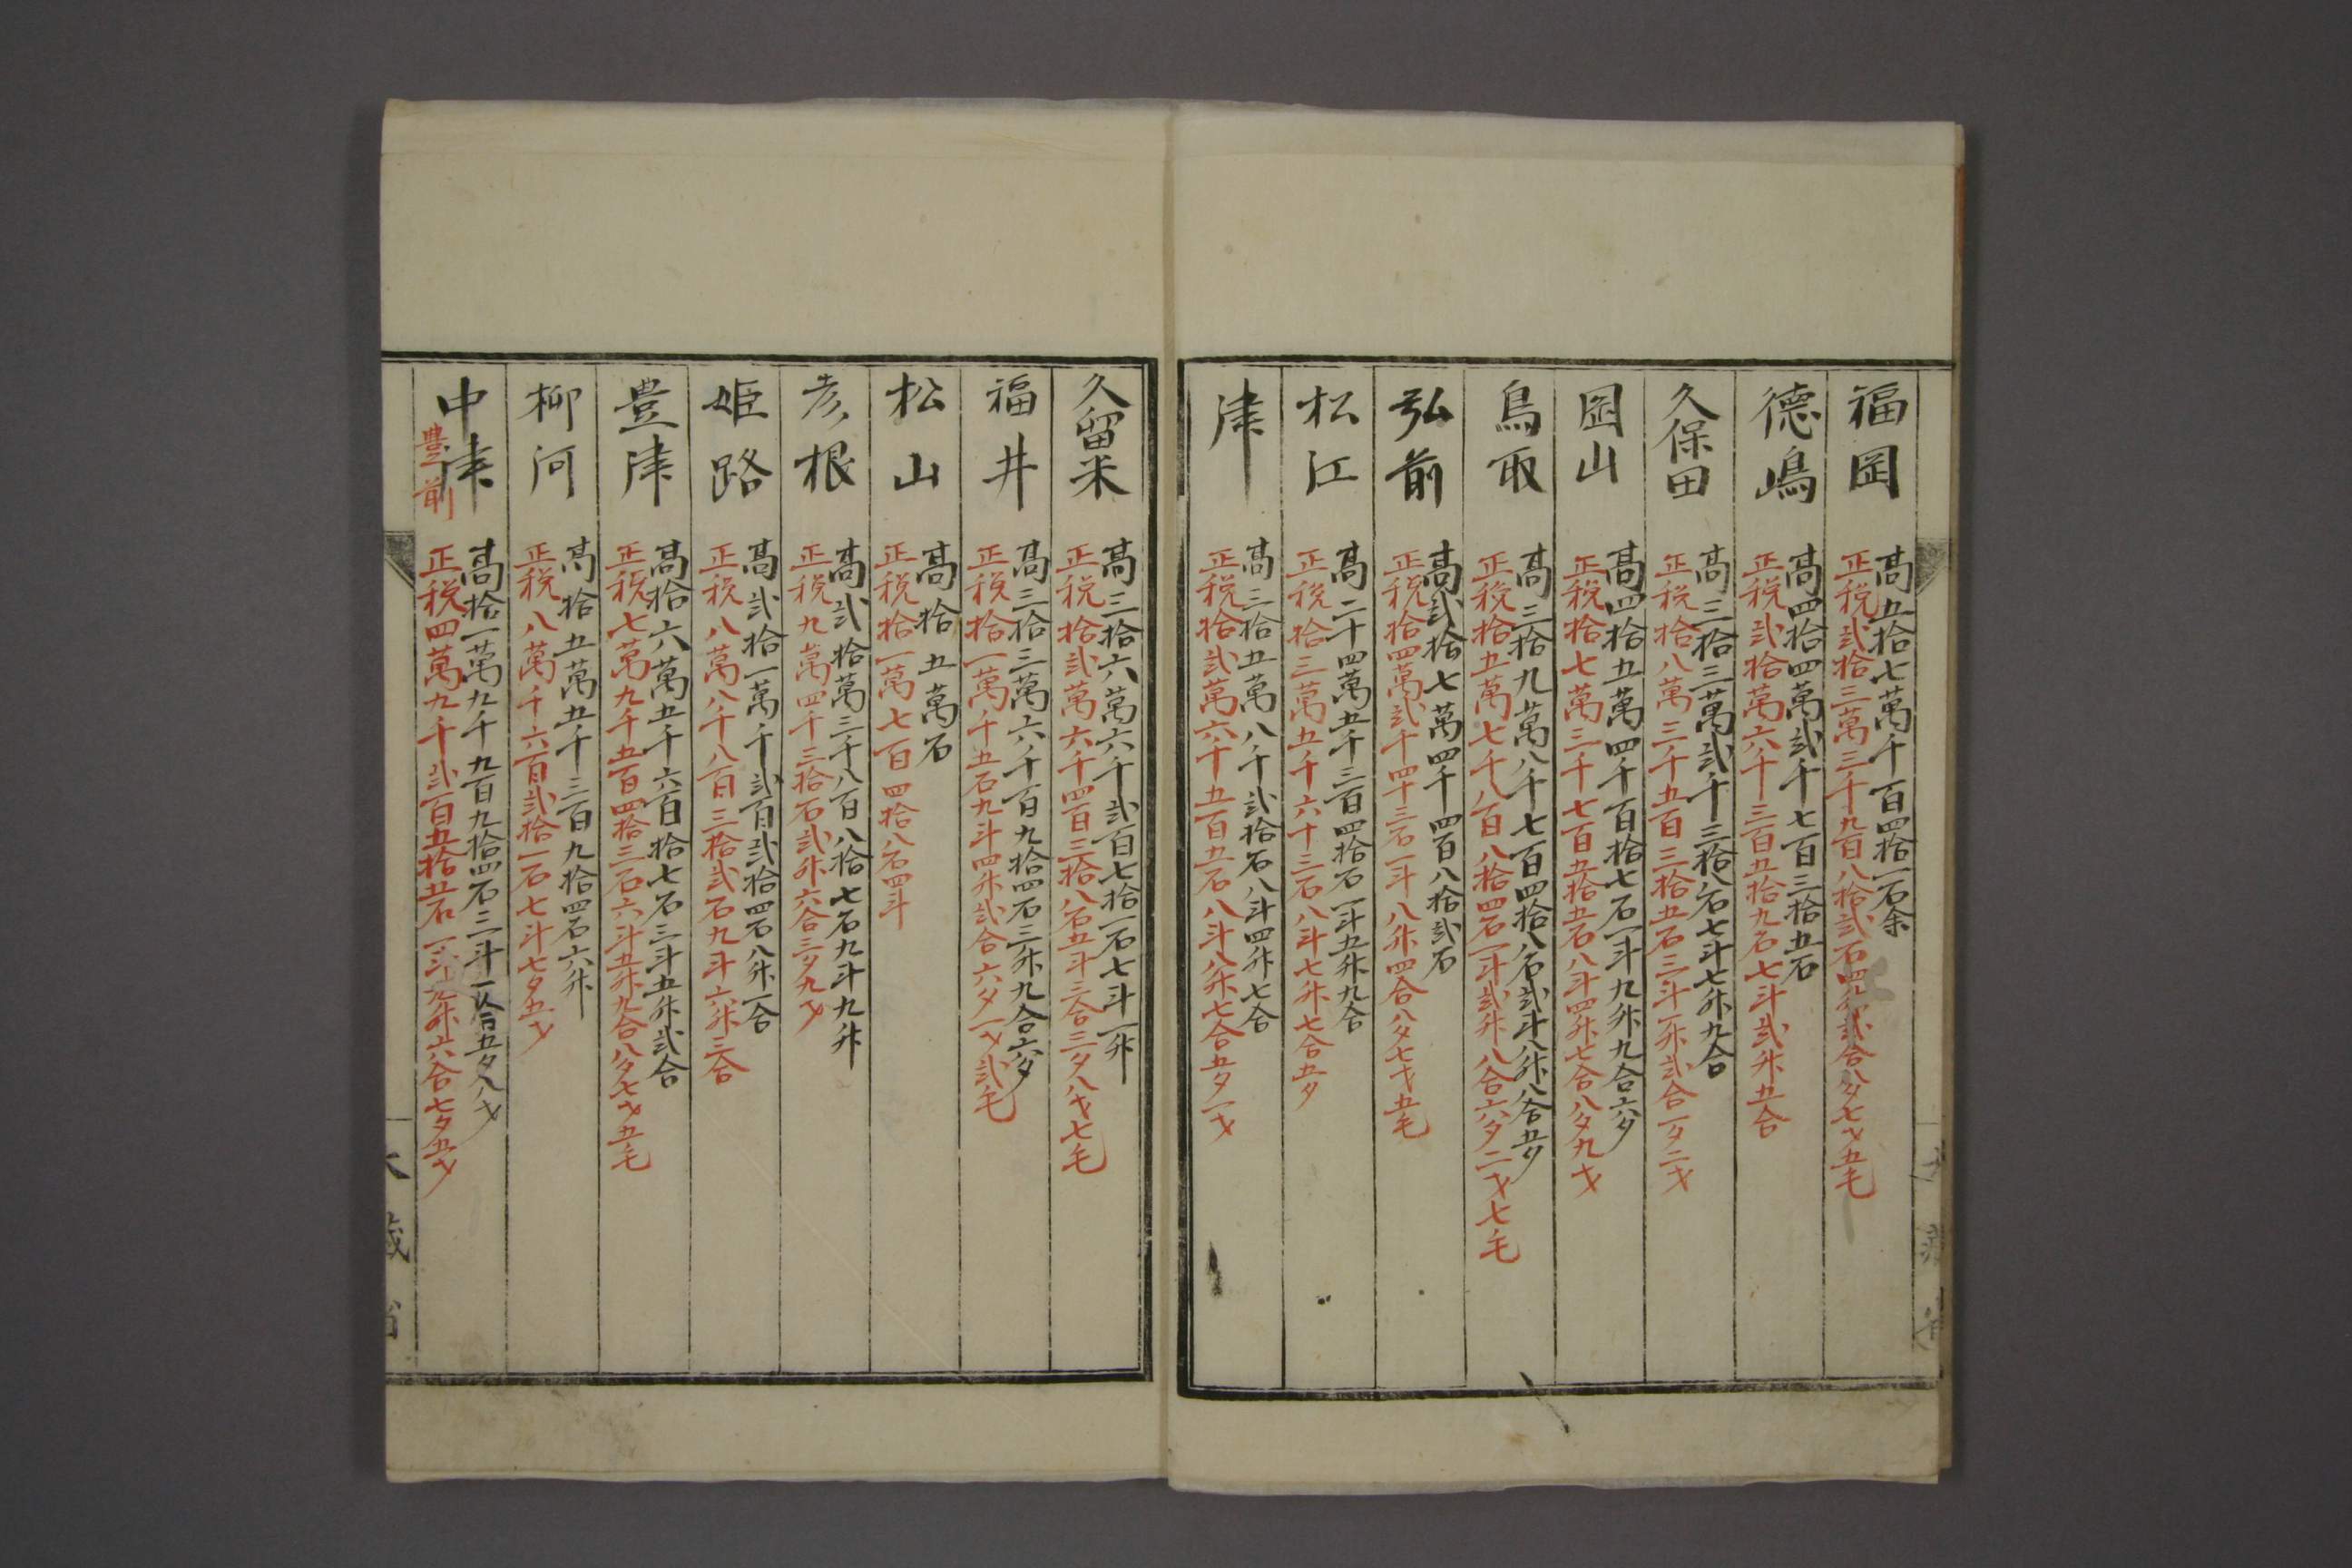 福岡
高五拾七萬千百四拾一石余
正税弐拾三萬三千九百八拾弐石四升弐合八夕七才五毛
德嶋
高四拾四萬弐千七百三拾五石
正税弐拾萬六千三百五拾九石七斗弐升五合
久保田
高三拾三萬弐千三拾八石七斗七升九合
正税拾八萬三千五百三拾五石三斗一升弐合一夕二才
岡山
高四拾五萬四千百拾七石一斗九升九合六夕
正税拾七萬三千七百五拾五石八斗四升七合八夕九才
鳥取
高三拾九萬八千七百四拾八石弐斗八升八合五夕
正税拾五萬七千八百八拾四石一斗弐升八合六夕二才七毛
弘前
高弐拾七萬四千四百八拾弐石
正税拾四萬弐千四十三石一斗八升四合八夕七才五毛
松江
高二十四萬五千三百四拾石一斗五升九合
正税拾三萬五千六十三石八斗七升七合五夕
津
高三拾五萬八千弐拾石八斗四升七合
正税拾弐萬六千五百五石八斗八升七合五夕一才
久留米
高三拾六萬六千弐百七拾一石七斗一升
正税拾弐萬六千四百三拾八石五斗三合三夕八才七毛
福井
高三拾三萬六千百九拾四石三升九合六夕
正税拾一萬千五石九斗四升弐合六夕一才弐毛
松山
高拾五萬石
正税拾一萬七百四拾八石四斗
彦根
高弐拾萬三千八百八拾七石九斗九升
正税九萬四千三拾石弐升六合三夕九才
姫路
高弐拾一萬千弐百弐拾四石八升一合
正税八萬八千八百三拾弐石九斗六升三合
豊津
高拾六萬五千六百拾七石三斗五升弐合
正税七萬九千五百四拾三石六斗五升九合八夕七才五毛
柳河
高拾五萬五千三百九拾四石六升
正税八萬千六百弐拾一石七斗七夕五才
中津
豊前
高拾一萬九千九百九拾四石三斗一合五夕八才
正税四萬九千弐百五拾五石一斗九升六合七夕五才
大藏省